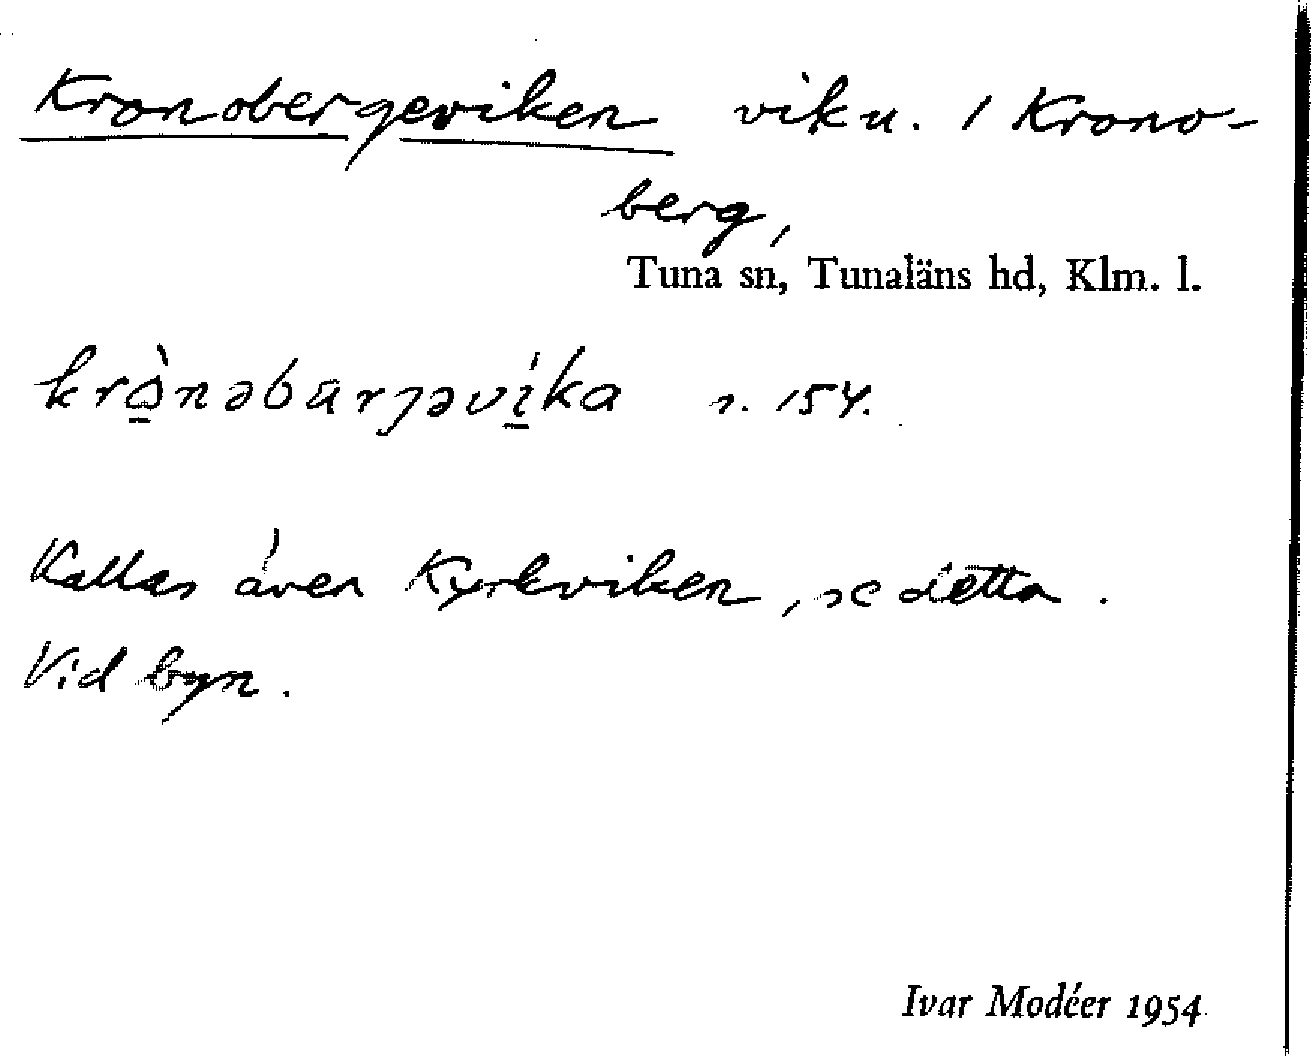 Kronobergeviken vik u. / Krono-
berg,
Tuna sn, Tunaläns hd, Klm. l.
krò̠nəbärjəví̠ka s. 154.
Kallas även Kyrkviken, se detta.
Vid byn.
Ivar Modéer 1954